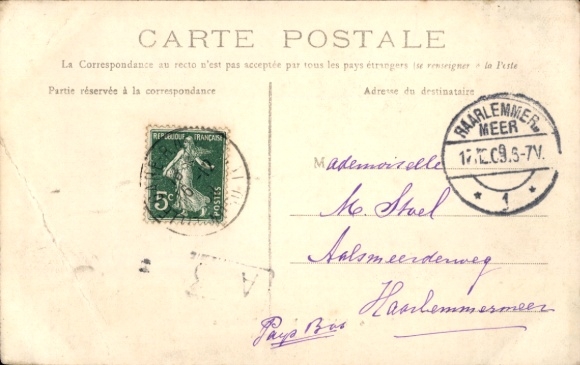 CARTE POSTALE
La Correspondance au recto n'est pas acceptée par tous les pays étrangers (se renseigner à la Poste
Partie réservée à la correspondance
Adresse du destinataire
REPUBLIQUE FRANÇAISE
5c
POSTES
HAARLEMMER-
MEER
6-7V.
1
Mademoiselle
M. Stoel
Aalsmeerderweg
Haarlemmermeer
Pays Bas